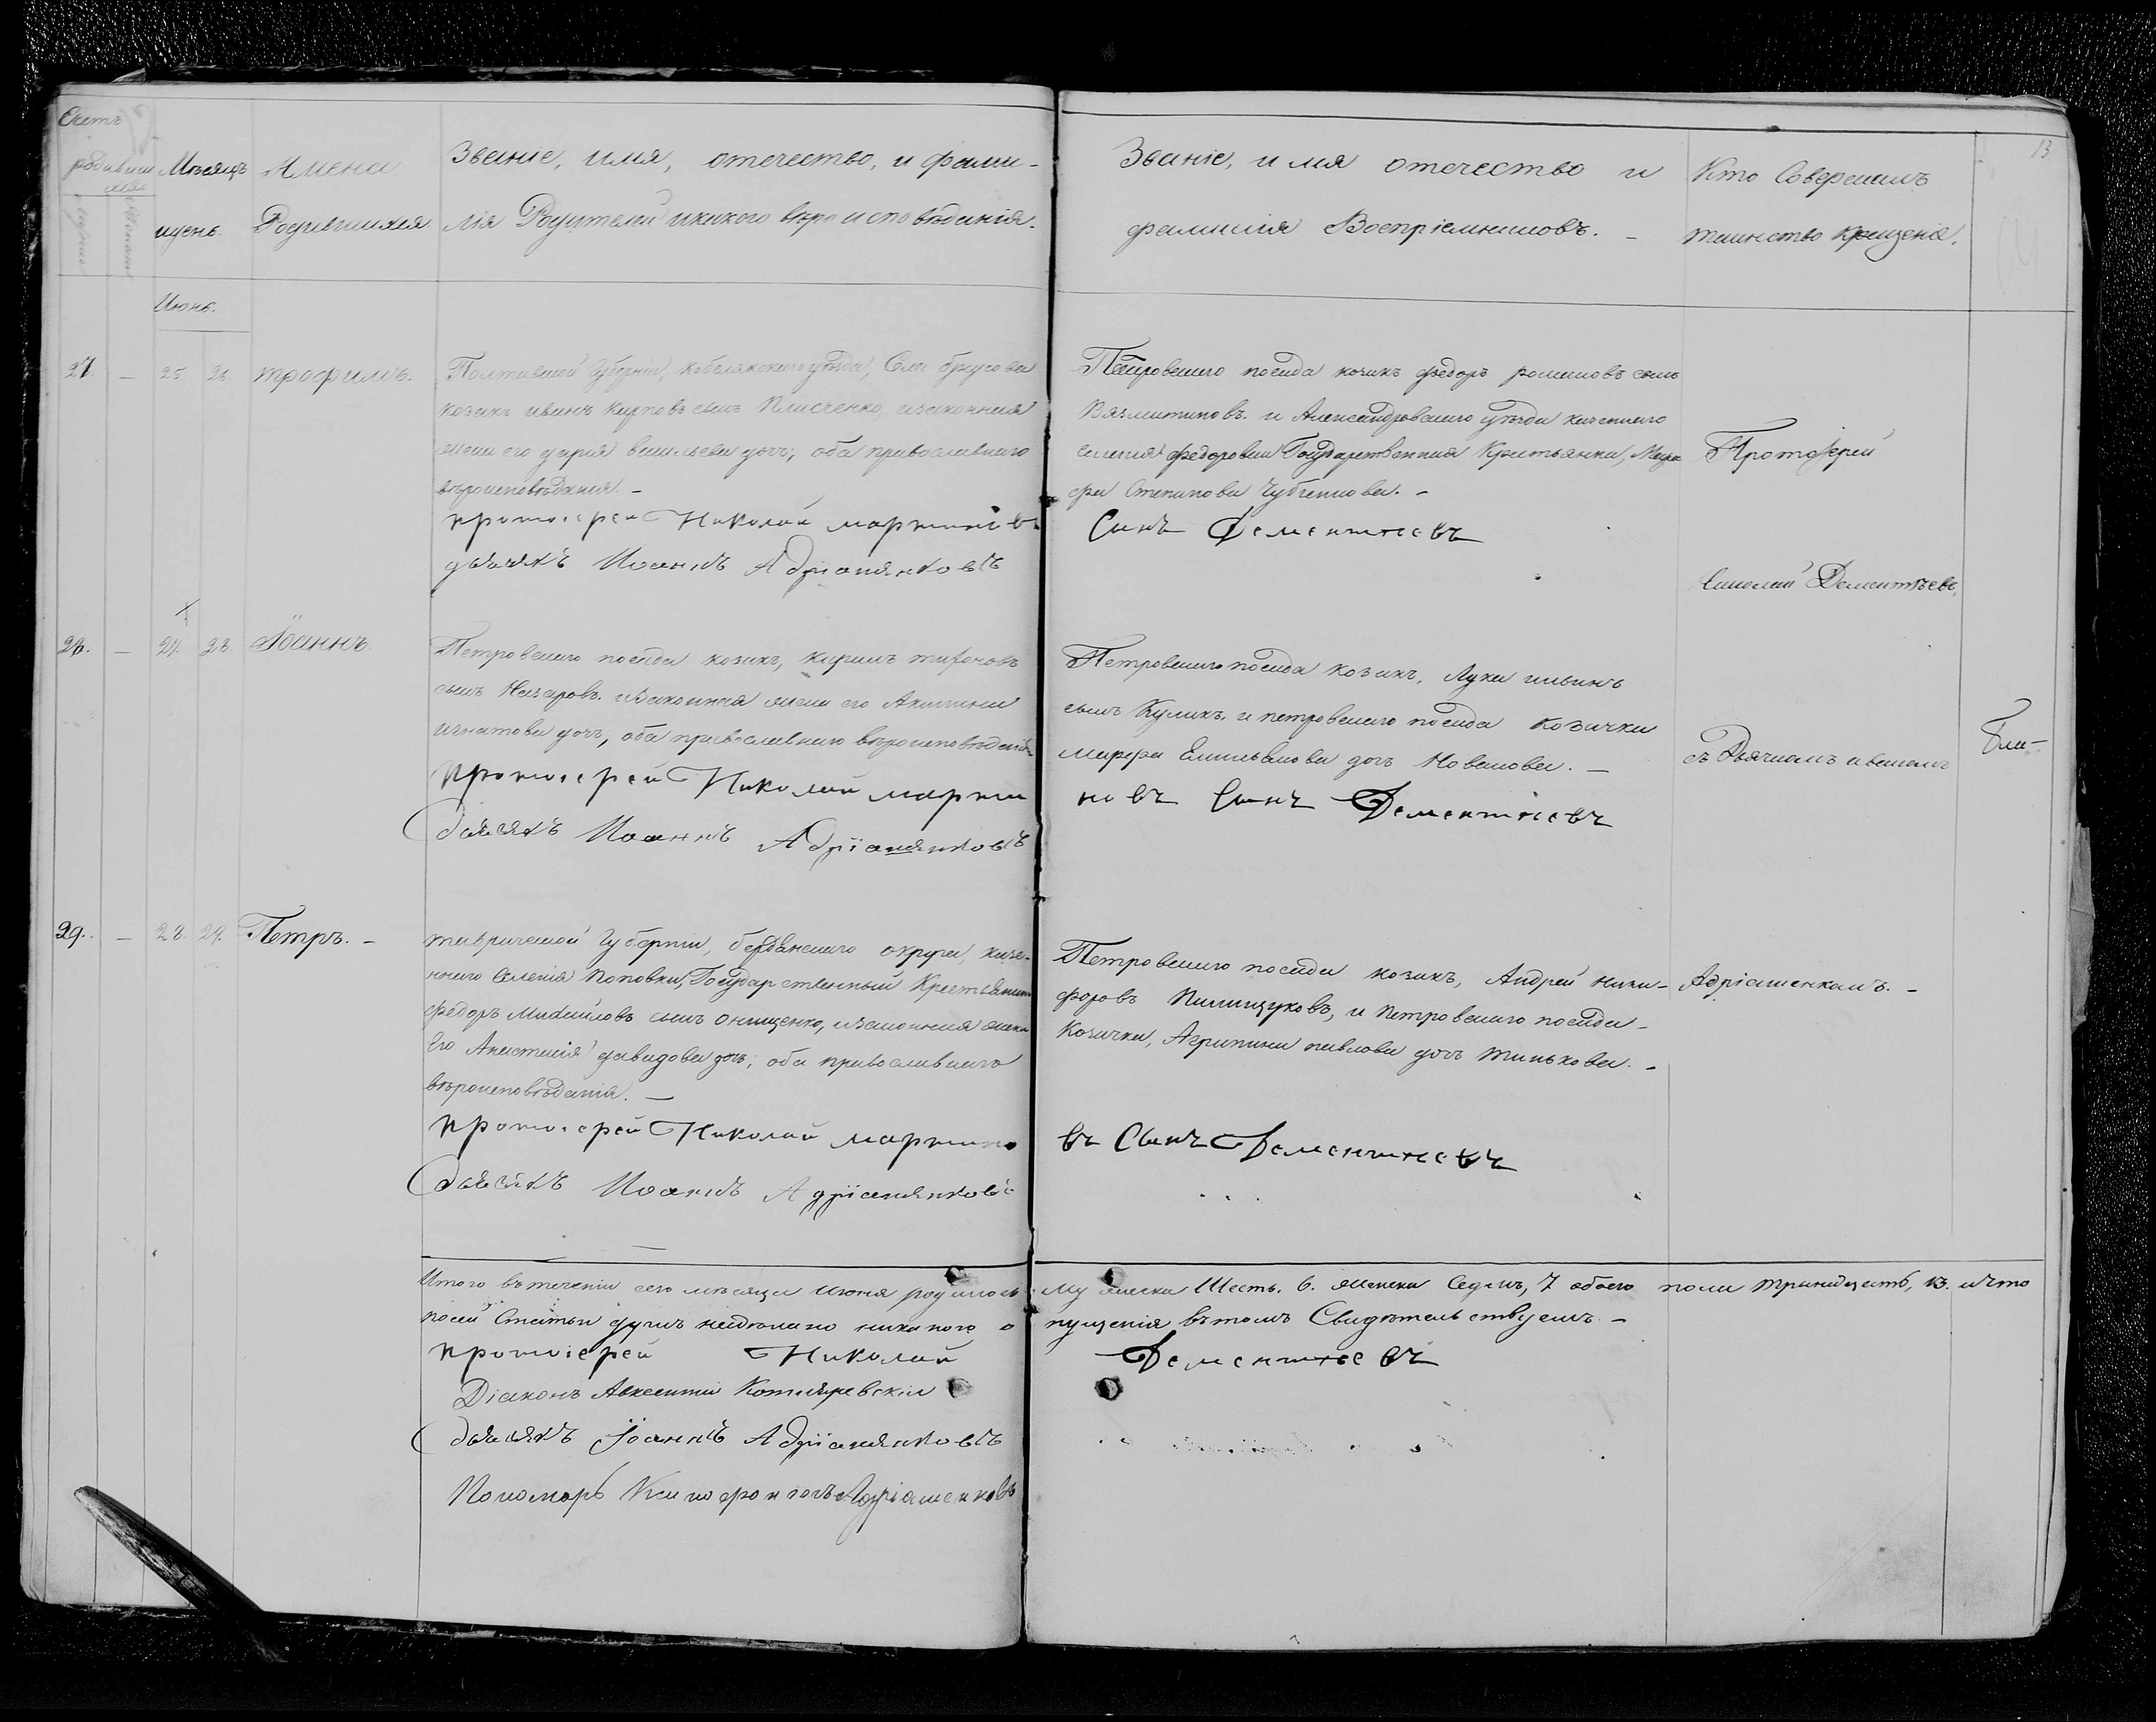 13
Счетъ
родивши
мся
Мѣсяцъ
Имена
Званіе, имя, отечество, и фами-
Званіе, имя отечество и
Кто Совершилъ
идень.
Родившихся
лія Родителей икакого вѣроисповѣданія.
фамилія Воспріемниковъ. -
таинство Крещенія.
Июнь.
27 - 25. 26. трофимъ.
Полтавской Губерніи, кобелякскаго уѣзда, Села
козакъ иванъ карповъ сынъ изаконная
жена его дарія васильева дочь; оба православнаго
вѣроисповѣданія. -
протоіерей Николай мартиновъ
дьячокъ Иоаннъ Адріашенковъ
Петровскаго посада козакъ федоръ романовъ сынъ
и Александровскаго уѣзда казеннаго
селенія федоровки Государственная Крестьянка, Мар
фа Степанова
Сынъ Дементьевъ
Протоіерей
Николай Дементьевъ,
28. - 27. 28. Іоаннъ.
Петровскаго посада козакъ, карпъ
сынъ Назаровъ. изаконная жена его Акилина
игнатова дочь, оба православнаго вѣроисповѣданія
протоіерей Николай мартин
дьячокъ Иоаннъ Адріашенковъ
Петровскаго посада козакъ, Лука ильинъ
сынъ Куликъ, и петровскаго посада козачка
марфа Емильянова дочь Новакова. -
новъ Сынъ Дементьевъ
съ Дьячкомъ иваномъ
29. - 28. 29. Петръ. -
таврической Губерніи, бердянскаго округа, казе-
ннаго Селенія Поповки, Государственный Крестьянинъ
федоръ Михайловъ сынъ онищенко, изаконная жена
Его Анастасія давидова дочь; оба православнаго
вѣроисповѣданія. -
протоіерей Николай мартино
дьячокъ Иоаннъ Адріашенковъ
Петровскаго посада козакъ, Андрей ники-
форовъ Пилипцуковъ, и Петровскаго посада -
Козачка, Агрипина павлова дочь тинькова. -
въ Сынъ Дементьевъ
Адріашенкомъ. -
Итого втеченіи сего мѣсяца июня родилось
муженска Шесть. 6. женска Седмъ, 7 обоего пола тринадцать, 13. ичто
посей Статьи душъ неидѣлано никакого о
пущенія втомъ Свидѣтельствуемъ. -
протоіерей Николай
Дементьевъ
Діаконъ Авксентій Котляревскій
дьячокъ Іоаннъ Адріашенковъ
Пономарь Ксинофонтъ Адріашенковъ